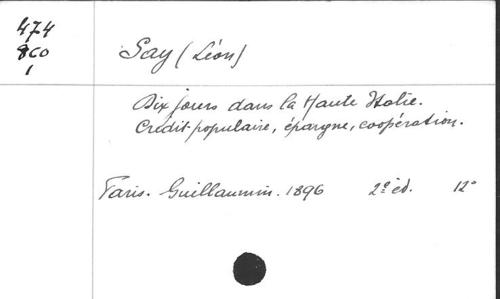 474
8CO
1
Say (Léon)
Dix jours dans la Haute Italie.
Crédit populaire, épargne, coopération.
Paris. Guillaumin. 1896 2e éd. 12°